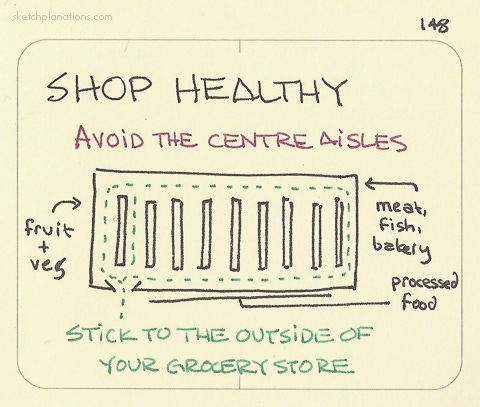 sketchplanations.com
148
SHOP HEALTHY
AVOID THE CENTRE AISLES
fruit
+
veg
meat,
fish,
bakery
processed
food
STICK TO THE OUTSIDE OF
YOUR GROCERY STORE